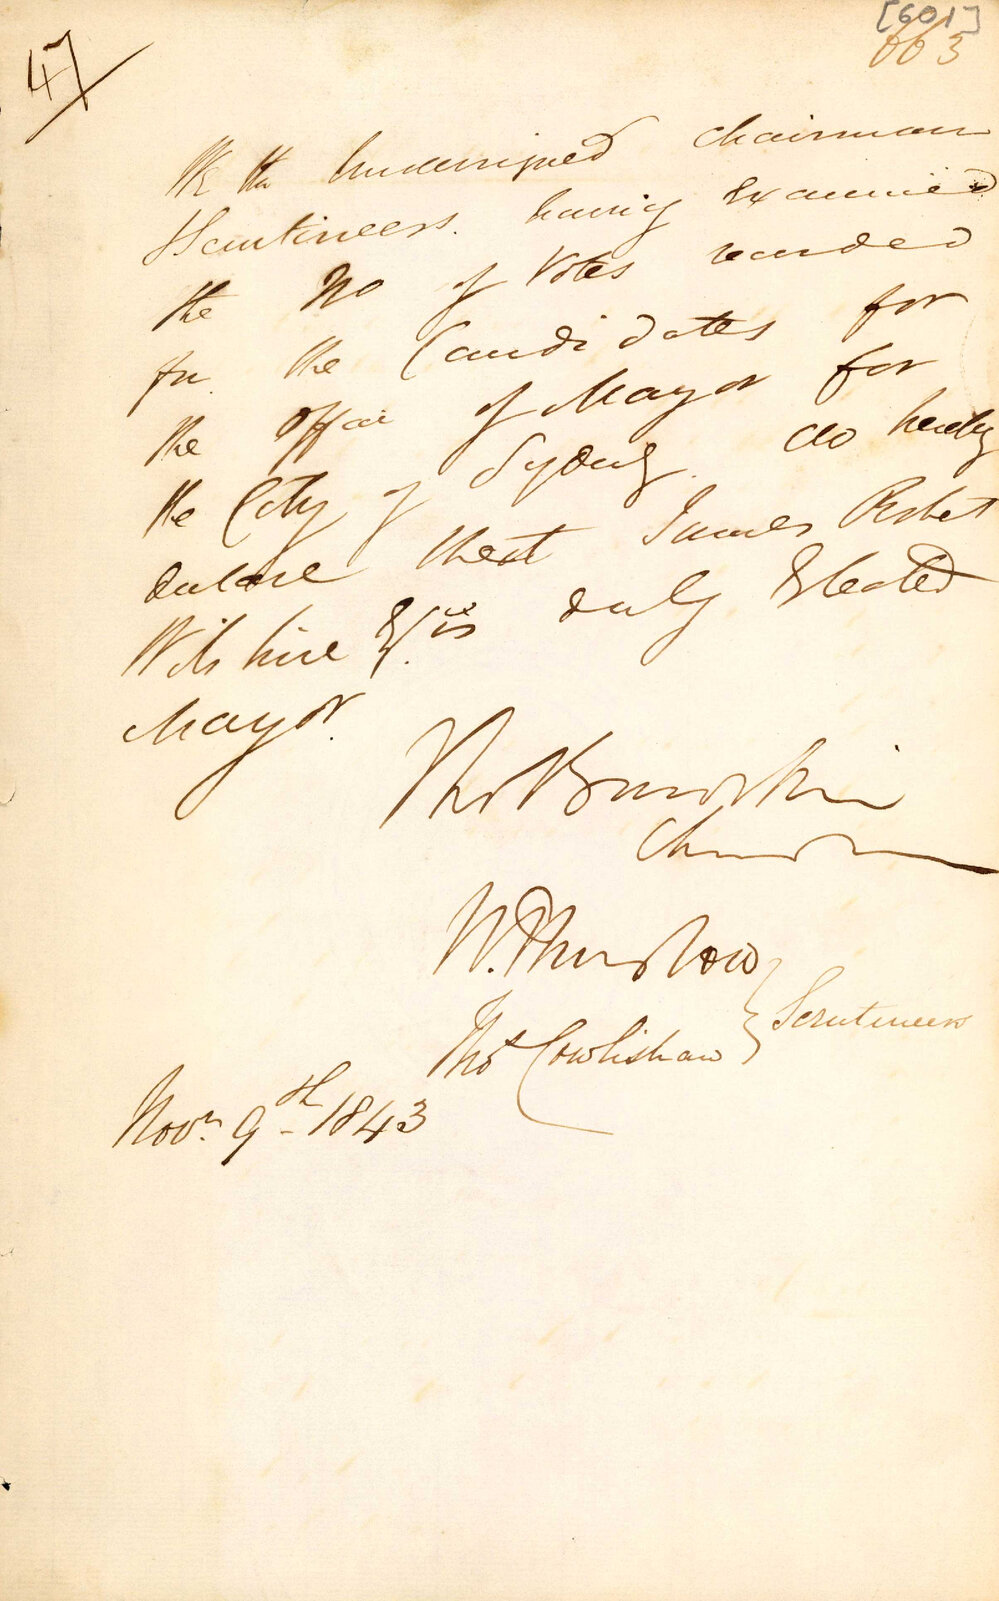 [601]
663
47
We the Undersigned Chairman
Scrutineers. having Examined
the No of Votes recorded
for the Candidates for
the office of Mayor for
the City of Sydney. do hereby
declare that James Robert
Wilshire Esqre is duly Elected
Mayor.
Thos
Chairman
W. Thurlow
Thos Cowlishaw } Scrutineers
Novr. 9th 1843